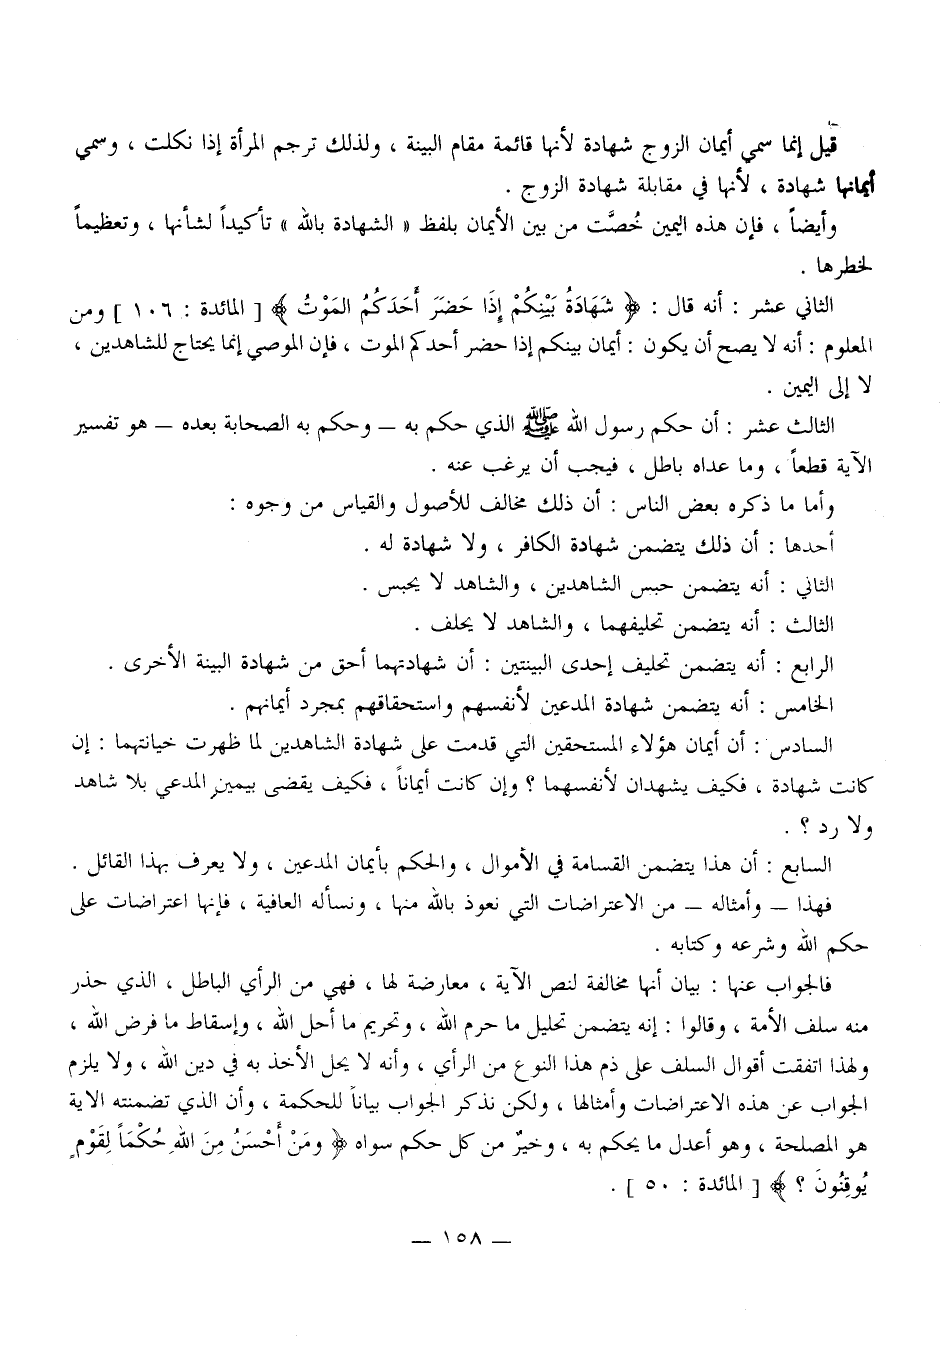 قيل إنما سمي أيمان الزوج شهادة لأنها قائمة مقام البينة ، ولذلك ترجم المرأة إذا نكلت ، وسمي
أيمانها شهادة ، لأنها في مقابلة شهادة الزوج .
وأيضاً ، فإن هذه اليمين خُصَّت من بين الأيمان بلفظ « الشهادة بالله » تأكيداً لشأنها ، وتعظيماً
لخطرها .
الثاني عشر : أنه قال : ﴿ شَهَادَةُ بَيْنِكُمْ إِذَا حَضَرَ أَحَدَكُمُ المَوْتُ ﴾ [ المائدة : ١٠٦ ] ومن
المعلوم : أنه لا يصح أن يكون : أيمان بينكم إذا حضر أحدكم الموت ، فإن الموصي إنما يحتاج للشاهدين ،
لا إلى اليمين .
الثالث عشر : أن حكم رسول الله ﷺ الذي حكم به — وحكم به الصحابة بعده — هو تفسير
الآية قطعاً ، وما عداه باطل ، فيجب أن يرغب عنه .
وأما ما ذكره بعض الناس : أن ذلك مخالف للأصول والقياس من وجوه :
أحدها : أن ذلك يتضمن شهادة الكافر ، ولا شهادة له .
الثاني : أنه يتضمن حبس الشاهدين ، والشاهد لا يحبس .
الثالث : أنه يتضمن تحليفهما ، والشاهد لا يحلف .
الرابع : أنه يتضمن تحليف إحدى البينتين : أن شهادتهما أحق من شهادة البينة الأخرى .
الخامس : أنه يتضمن شهادة المدعين لأنفسهم واستحقاقهم بمجرد أيمانهم .
السادس : أن أيمان هؤلاء المستحقين التي قدمت على شهادة الشاهدين لما ظهرت خيانتهما : إن
كانت شهادة ، فكيف يشهدان لأنفسهما ؟ وإن كانت أيماناً ، فكيف يقضى بيمين المدعي بلا شاهد
ولا رد ؟ .
السابع : أن هذا يتضمن القسامة في الأموال ، والحكم بأيمان المدعين ، ولا يعرف بهذا القائل .
فهذا — وأمثاله — من الاعتراضات التي نعوذ بالله منها ، ونسأله العافية ، فإنها اعتراضات على
حكم الله وشرعه وكتابه .
فالجواب عنها : بيان أنها مخالفة لنص الآية ، معارضة لها ، فهي من الرأي الباطل ، الذي حذر
منه سلف الأمة ، وقالوا : إنه يتضمن تحليل ما حرم الله ، وتحريم ما أحل الله ، وإسقاط ما فرض الله ،
ولهذا اتفقت أقوال السلف على ذم هذا النوع من الرأي ، وأنه لا يحل الأخذ به في دين الله ، ولا يلزم
الجواب عن هذه الاعتراضات وأمثالها ، ولكن نذكر الجواب بياناً للحكمة ، وأن الذي تضمنته الاية
هو المصلحة ، وهو أعدل ما يحكم به ، وخيرٌ من كل حكم سواه ﴿ ومَنْ أَحْسَنُ مِنَ اللهِ حُكْمَاً لِقَوْمٍ
يُوقِنُونَ ؟ ﴾ [ المائدة : ٥٠ ] .
— ١٥٨ —